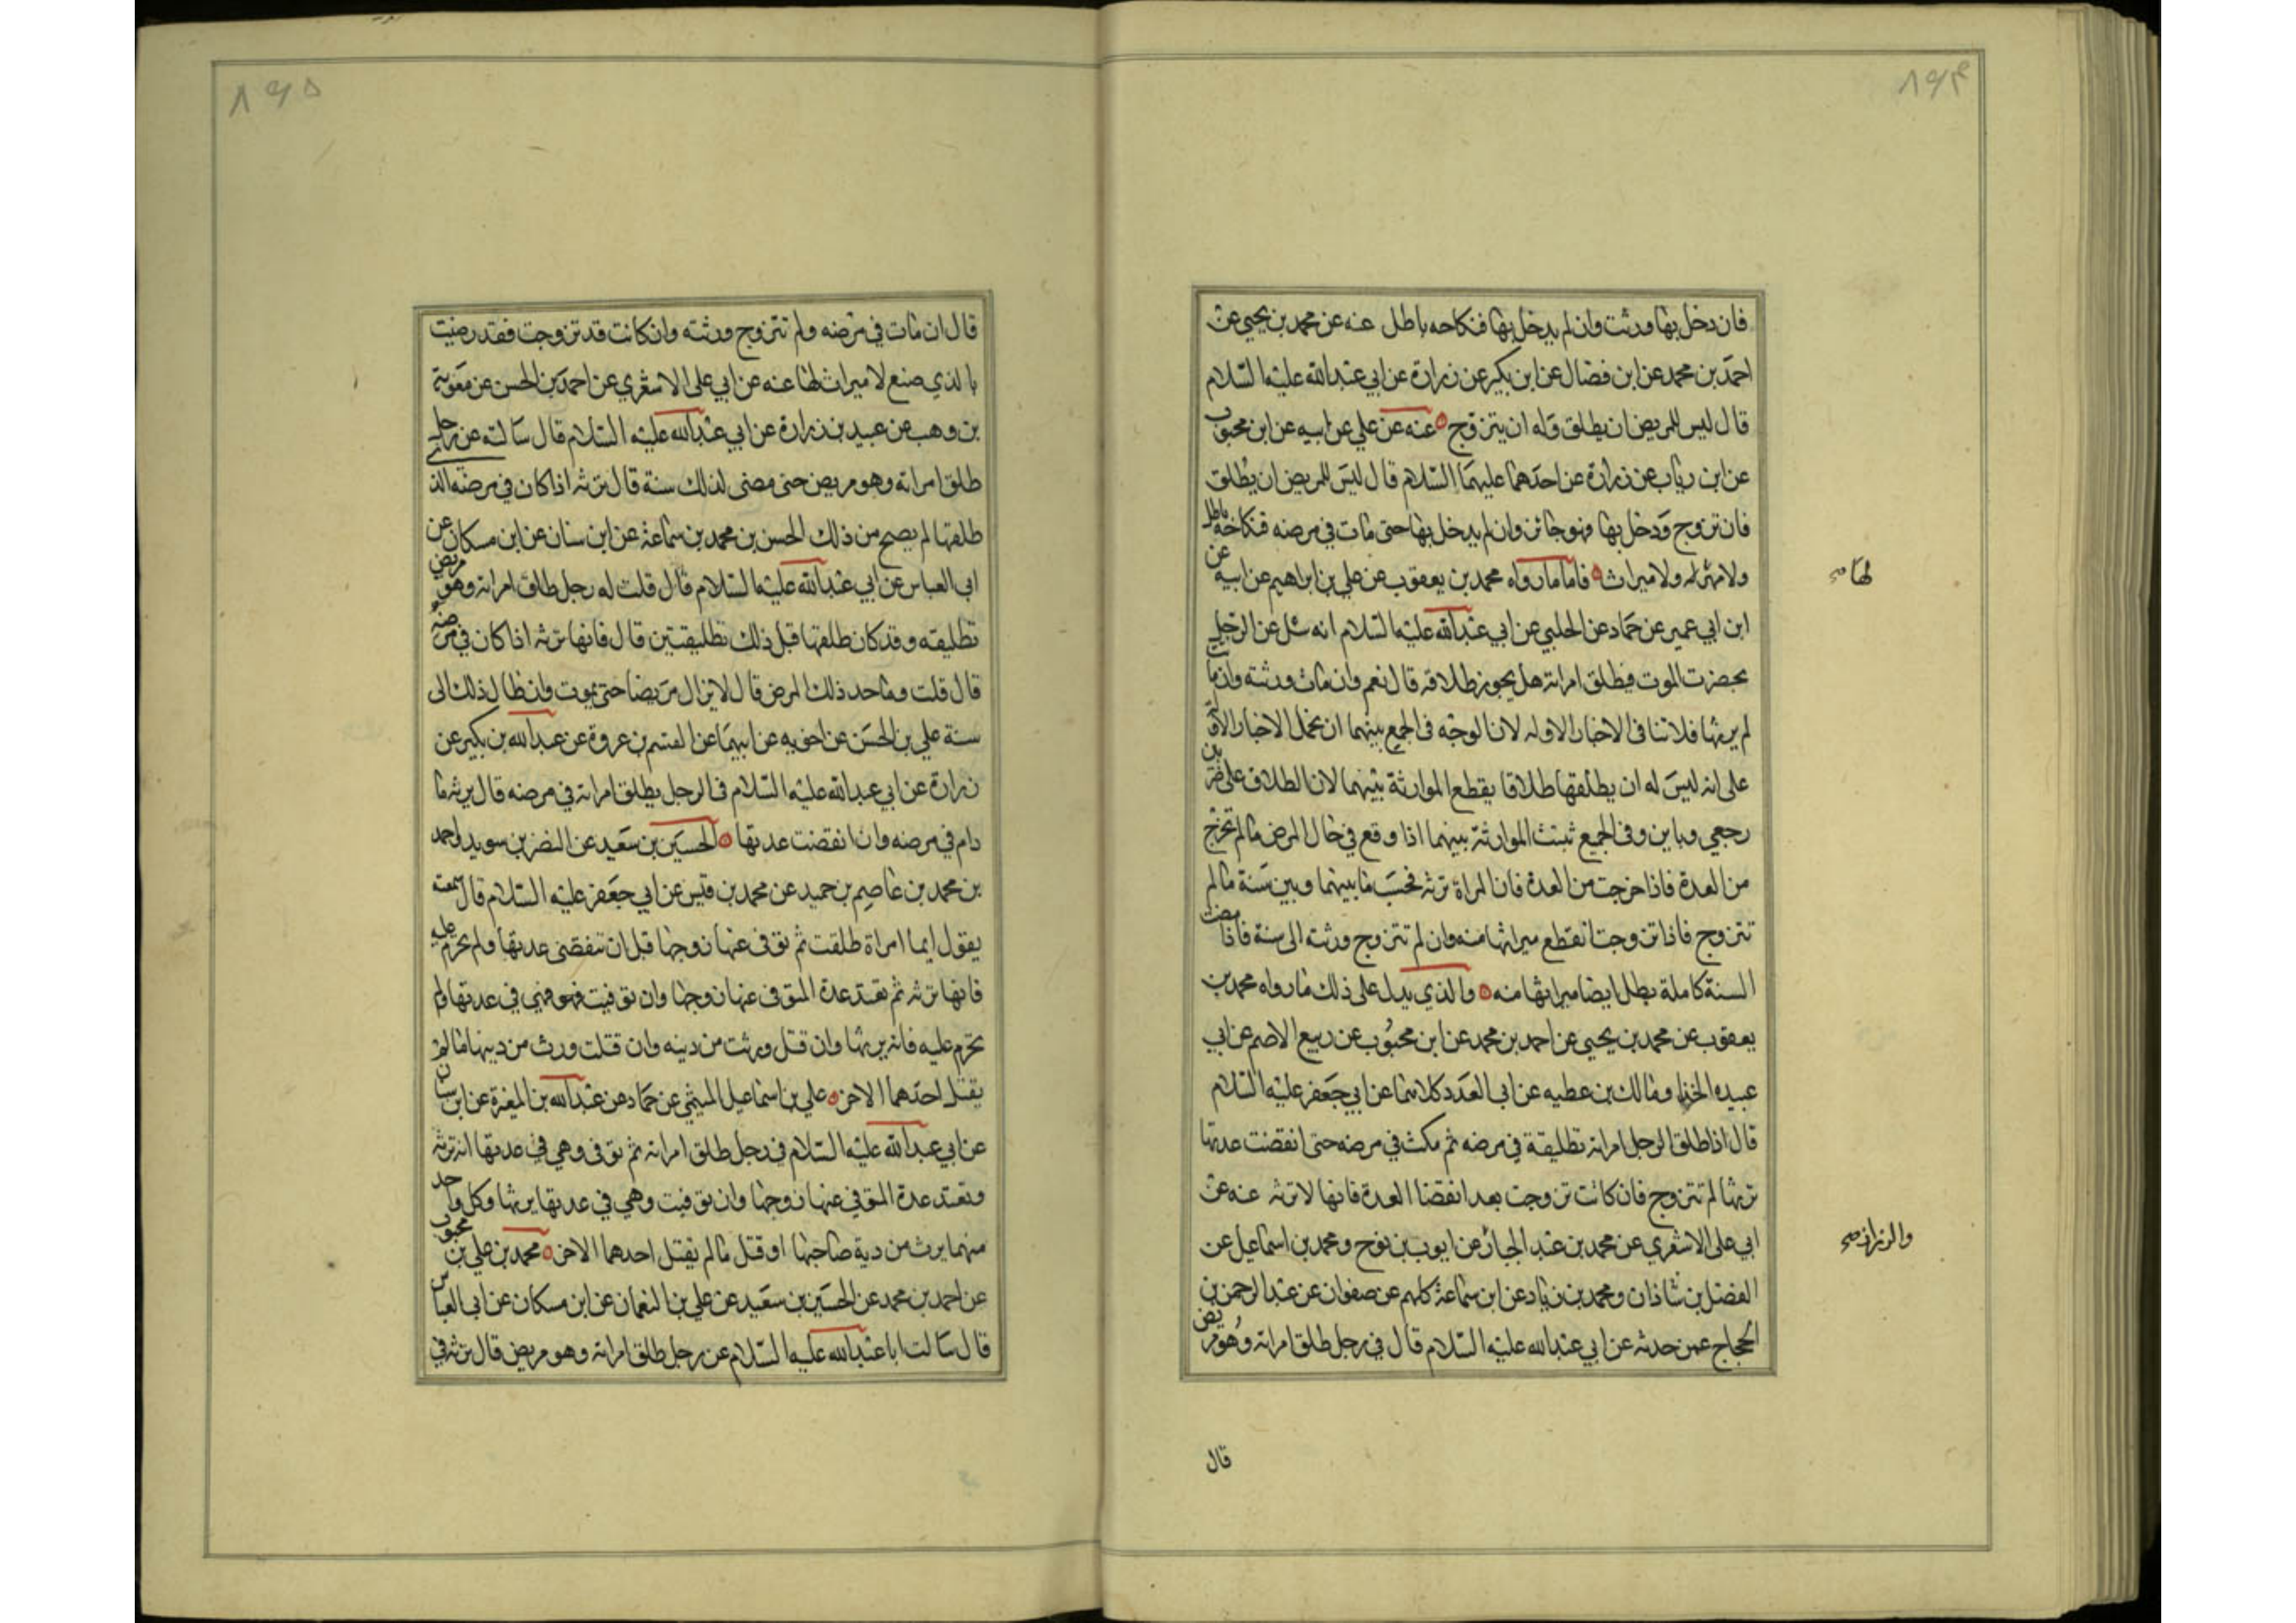 ٨٩٤
فان دخل بها ورثت وان لم يدخل بها فنكاحه باطل عنه عن محمد بن يحيى عن
احمد بن محمد عن ابن فضال عن ابن بكير عن زرارة عن ابي عبد الله عليه السلام
قال ليس للمريض ان يطلق وله ان يتزوج عنه عن علي عن ابيه عن ابن محبوب
عن ابن رياب عن زرارة عن احدهما عليهما السلام قال ليس للمريض ان يطلق
فان تزوج ودخل بها فهو جائز وان لم يدخل بها حتى مات في مرضه فنكاحه باطل
ولا مهر له ولا ميراث فاما ما رواه محمد بن يعقوب عن علي بن ابراهيم عن ابيه عن
لها صح
ابن ابي عمير عن حماد عن الحلبي عن ابي عبد الله عليه السلام انه سئل عن الرجل
يحضرت الموت فيطلق امراته هل يجوز طلاقه قال نعم وان مات ورثته وان ماتت
لم يرثها فلا تنافى الاخبار الاوله لان الوجه في الجمع بينهما ان نحمل الاخبار الاولة
على انه ليس له ان يطلقها طلاقا يقطع الموارثة بينهما لان الطلاق على ضربين
رجعي وباين وفى الجميع تثبت الموارثة بينهما اذا وقع في حال المرض مالم تخرج
من العدة فاذا خرجت من العدة فان المراة ترثه فحسب ما بينهما وبين سنة مالم
تتزوج فاذا تزوجت انقطع ميراثها منه وان لم تتزوج ورثته الى سنة فاذا مضت
السنة كاملة بطل ايضا ميراثها منه والذي يدل على ذلك ما رواه محمد بن
يعقوب عن محمد بن يحيى عن احمد بن محمد عن ابن محبوب عن ربيع الاصم عن ابي
عبيده الحذا ومالك بن عطيه عن ابي العدد كلاهما عن ابي جعفر عليه السلام
قال اذا طلق الرجل امراته تطليقة في مرضه ثم مكث في مرضه حتى انقضت عدتها
ترثها لم تتزوج فان كانت تزوجت بعد انقضا العدة فانها لا ترثه عنه عن
ابي على الاشعري عن محمد بن عبد الجبار عن ايوب بن نوح ومحمد بن اسماعيل عن
والرزاز صح
الفضل بن شاذان ومحمد بن زياد عن ابن سماعة كلهم عن صفوان عن عبد الرحمن بن
الحجاج عمن حدثه عن ابي عبد الله عليه السلام قال في رجل طلق امراته وهو مريض
قال
٨٩٥
قال ان مات في مرضه ولم تتزوج ورثته وان كانت قد تزوجت فقد رضيت
بالذي صنع لا ميراث لها عنه عن ابي على الاشعري عن احمد بن الحسن عن معوية
بن وهب عن عبيد بن زرارة عن ابي عبد الله عليه السلام قال سالته عن رجل
طلق امراته وهو مريض حتى مضى لذلك سنة قال ترثه اذا كان في مرضه الذي
طلقها لم يصح من ذلك الحسن بن محمد بن سماعة عن ابن سنان عن ابن مسكان عن
ابي العباس عن ابي عبد الله عليه السلام قال قلت له رجل طلق امراته وهو مريض
تطليقه وقد كان طلقها قبل ذلك تطليقتين قال فانها ترثه اذا كان في مرضه
قال قلت وما حد ذلك المرض قال لا يزال مريضا حتى يموت وان طال ذلك الى
سنة علي بن الحسن عن اخويه عن ابيهما عن القسم بن عروة عن عبد الله بن بكير عن
زرارة عن ابي عبد الله عليه السلام في الرجل يطلق امراته في مرضه قال يرثه ما
دام في مرضه وان انقضت عدتها الحسين بن سعيد عن النضر بن سويد واحمد
بن محمد بن عاصم بن حميد عن محمد بن قيس عن ابي جعفر عليه السلام قال سمعته
يقول ايما امراة طلقت ثم توفى عنها زوجها قبل ان تنقضى عدتها ولم تحرم عليه
فانها ترثه ثم تعتد عدة المتوفى عنها زوجها وان توفيت فهو وهي في عدتها ولم
تحرم عليه فانه يرثها وان قتل ورثت من دينه وان قتلت ورث من ديتها مالم
يقتل احدهما الاخر علي بن اسماعيل الميثمي عن حماد عن عبد الله بن المغيرة عن ابن سنان
عن ابي عبد الله عليه السلام في رجل طلق امراته ثم توفى وهي في عدتها انه ترثه
وتعتد عدة المتوفي عنها زوجها وان توفيت وهي في عدتها يرثها وكل واحد
منهما يرث من دية صاحبها او قتل مالم يقتل احدهما الاخر محمد بن علي بن محبوب
عن احمد بن محمد عن الحسين بن سعيد عن علي بن النعمان عن ابن مسكان عن ابي العباس
قال سالت ابا عبد الله عليه السلام عن رجل طلق امراته وهو مريض قال ترثه في